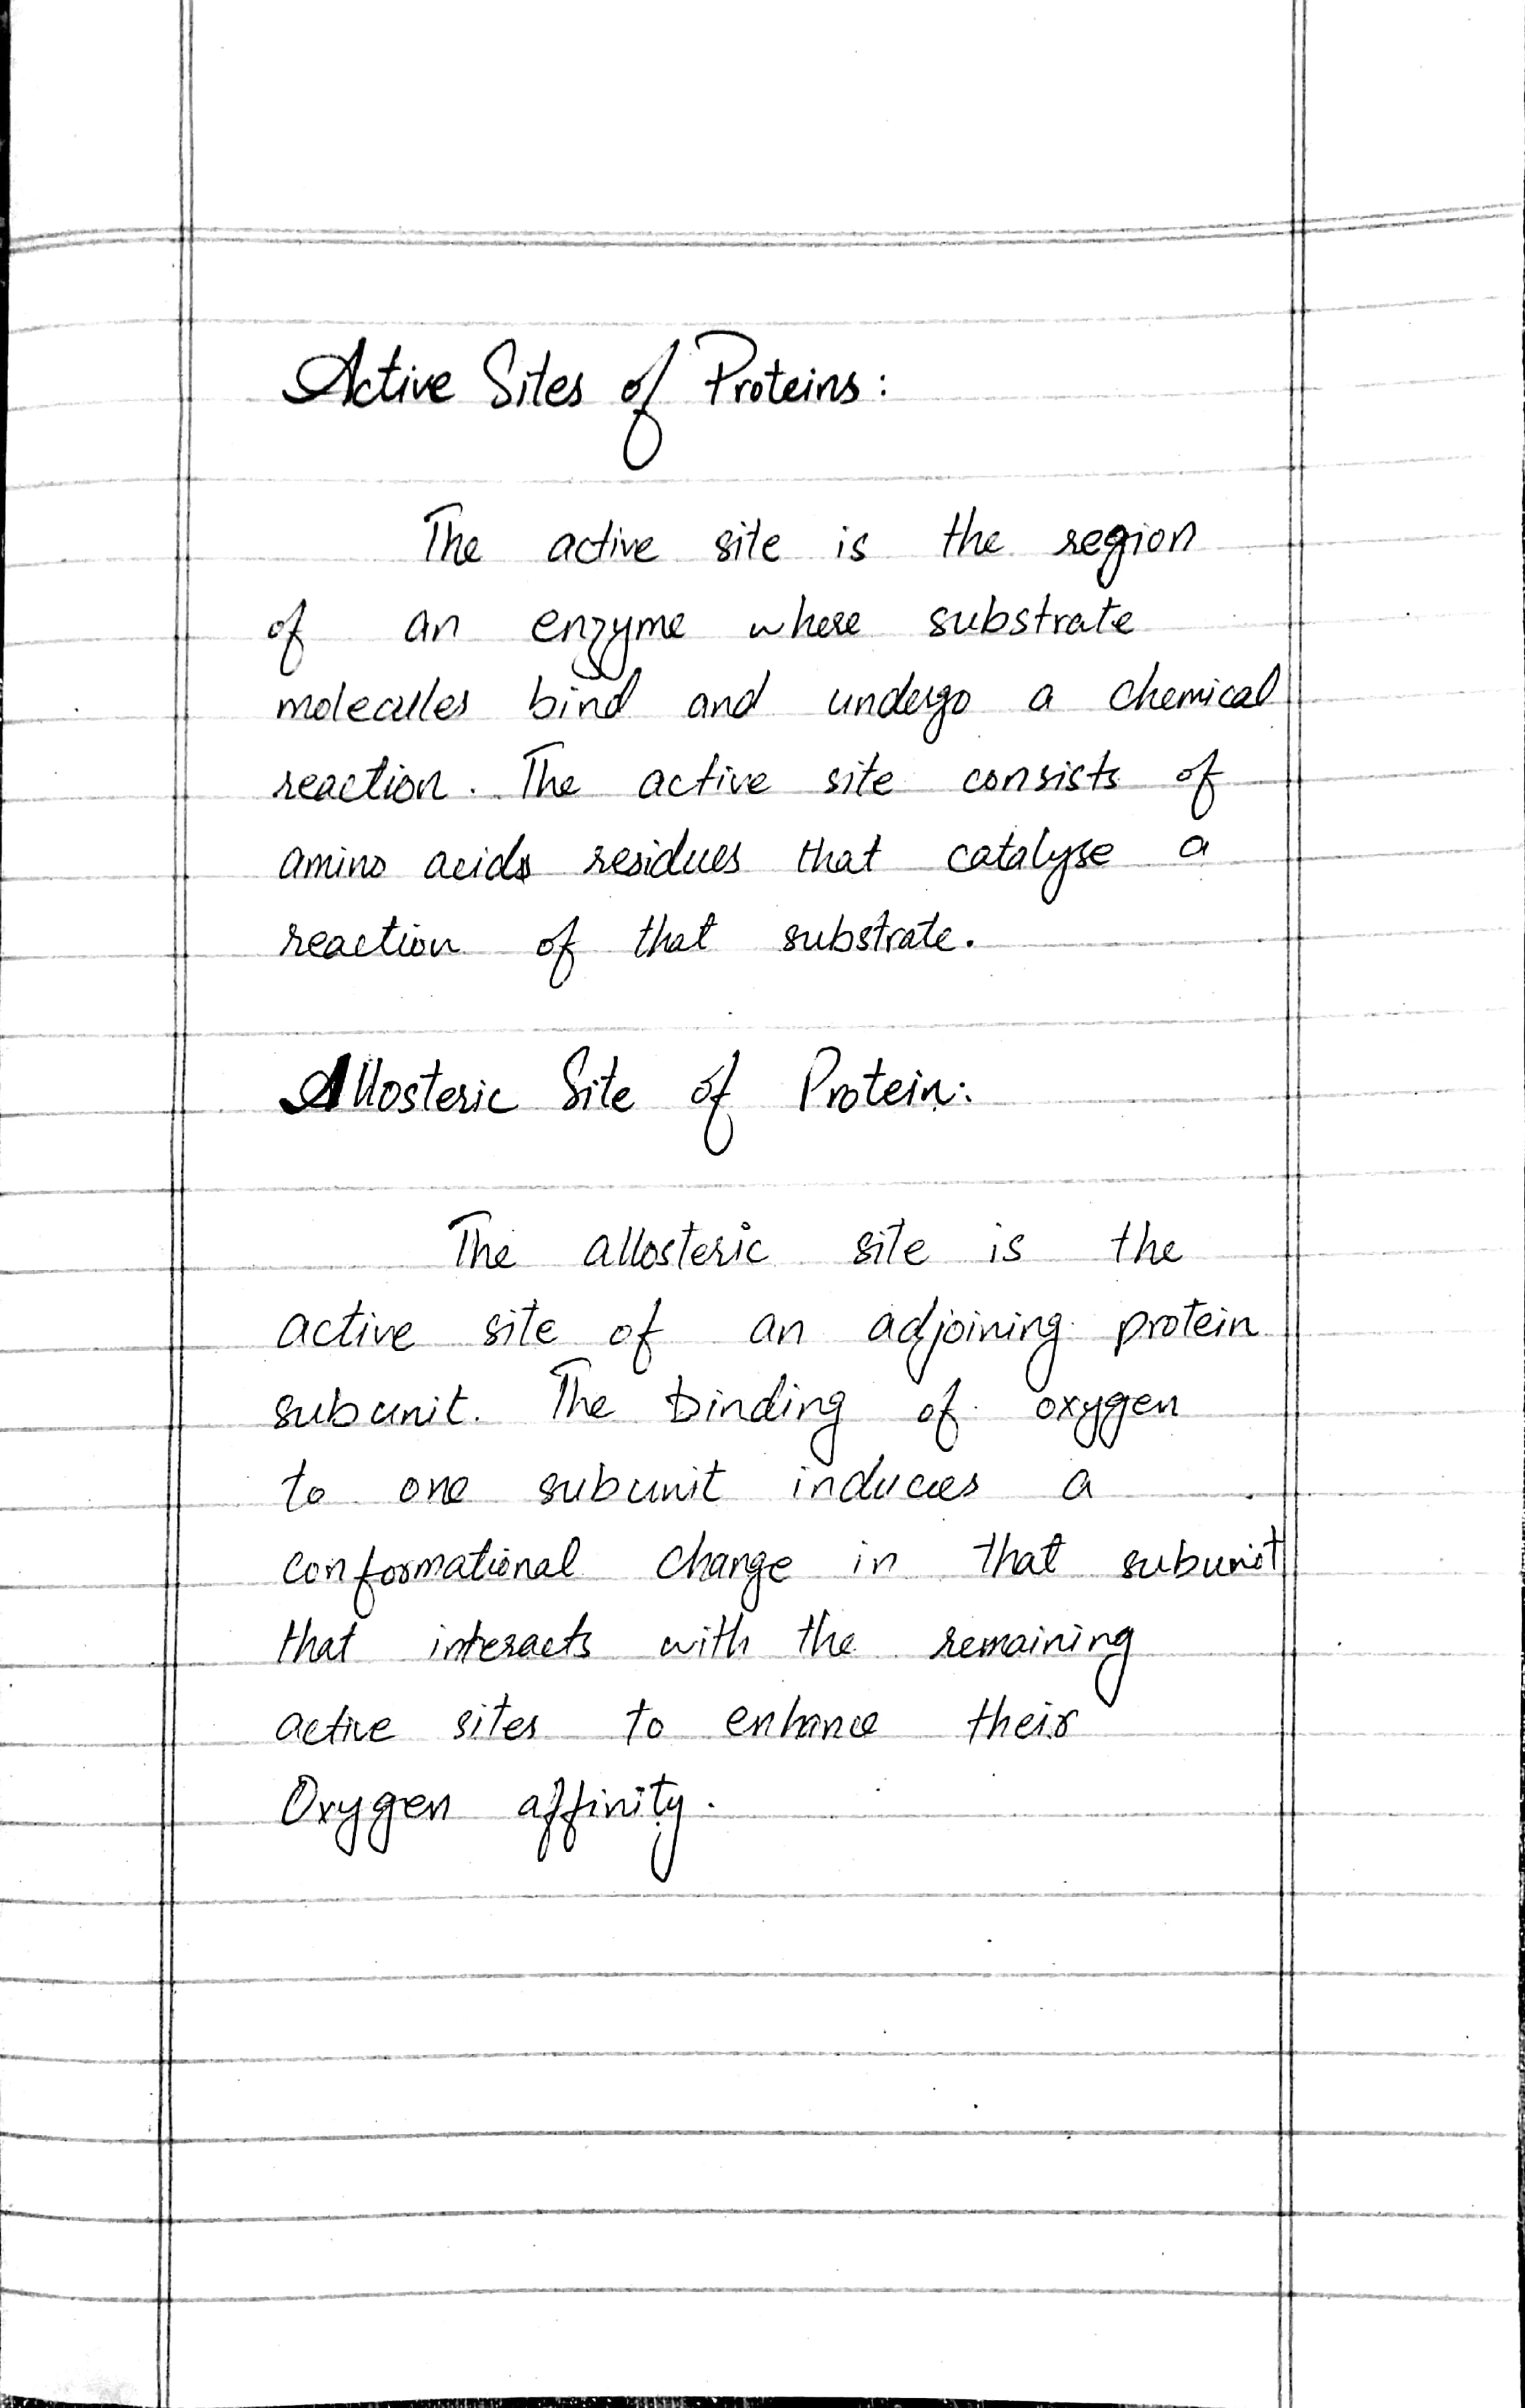 Active Sites of Proteins:
The active site is the region
of an enzyme where substrate
molecules bind and undergo a chemical
reaction. The active site consists of
amino acids residues that catalyse a
reaction of that substrate.
Allosteric Site of Protein:
The allosteric site is the
active site of an adjoining protein
subunit. The binding of oxygen
to one subunit induces a
conformational change in that subunit
that interacts with the remaining
active sites to enhance their
Oxygen affinity.